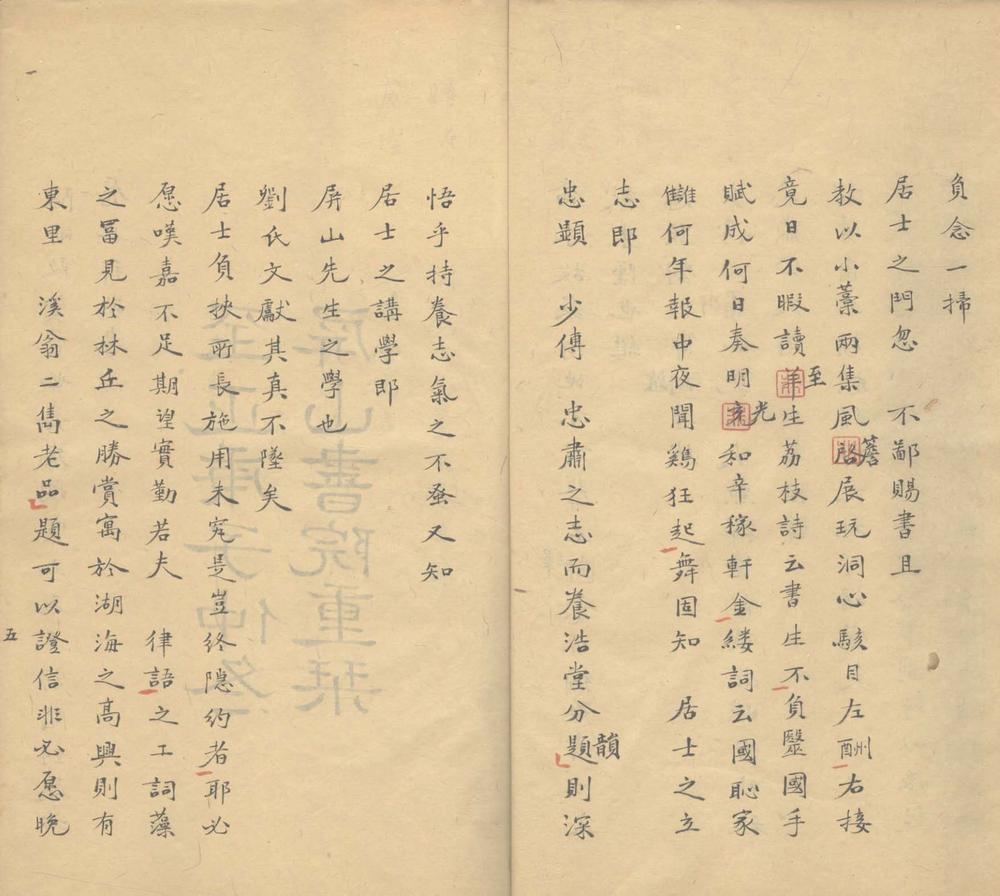 負念一掃
居士之門忽　不鄙賜書且
教以小藁兩集風簷展玩洞心駭目左酬右接
竟日不暇讀至生荔枝詩云書生不負毉國手
賦成何日奏明光和辛稼軒金縷詞云國恥家
讎何年報中夜聞鷄狂起舞固知　居士之立
志即
忠顯　少傅　忠肅之志而養浩堂分題韻則深
悟乎持養志氣之不蚤又知
居士之講學即
屏山先生之學也
劉氏文獻其真不墜矣
居士負挾所長施用未究是豈終隱約者耶必
愿嘆嘉不足期望實勤若夫　律語之工詞藻
之冨見於林丘之勝賞寓於湖海之高興則有
東里　溪翁二雋老品題可以證信非必愿晩
五